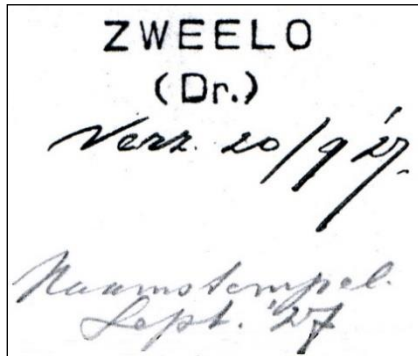 ZWEELO
(Dr.)
Verz. 20/9 '27.
Naamstempel.
Sept. '27